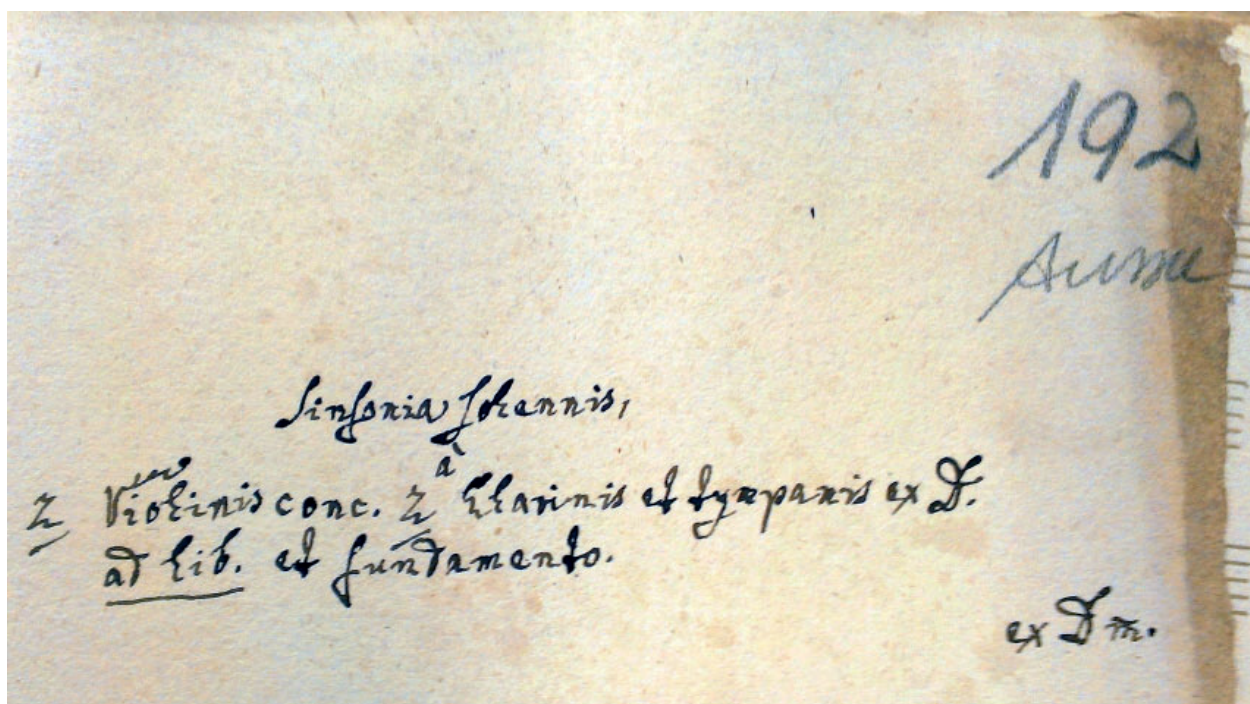 192
Sinfonia Solennis,
à
2 Violinis conc. 2 Clarinis et tympanis ex D.
ad lib. et fundamento.
ex D m.